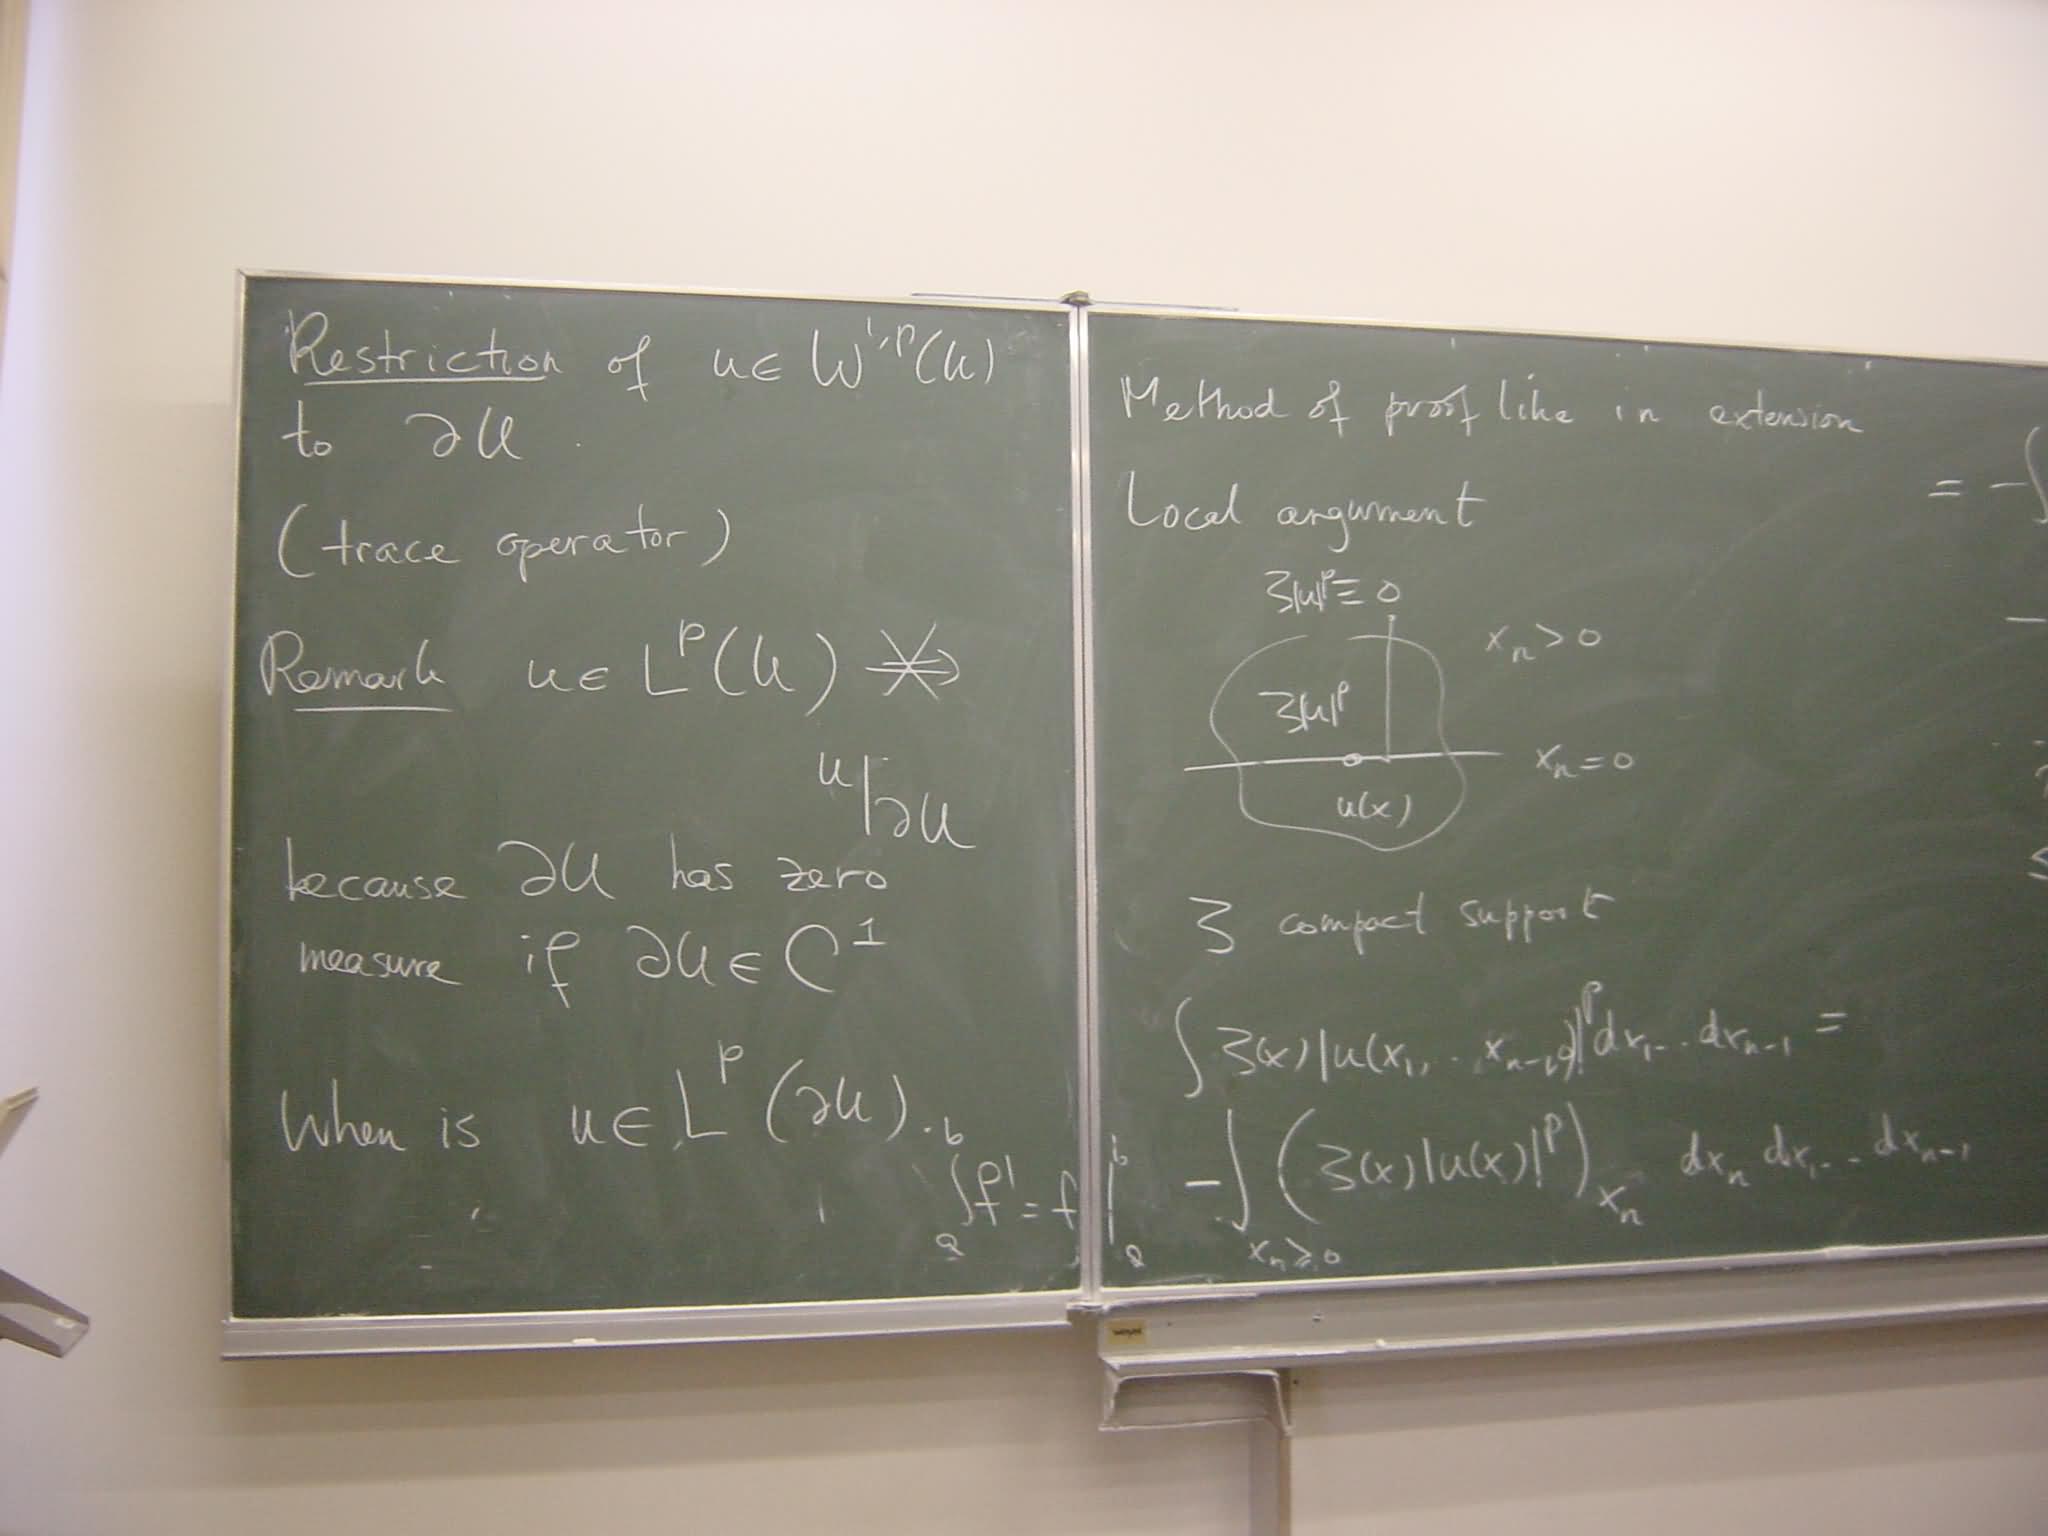 Restriction of u∈ W^{1,p}(U)
to ∂U
(trace operator)
Remark u∈ L^p(U) ⇏
u|∂U
because ∂U has zero
measure if ∂U ∈ C^1
When is u∈ L^p(∂U).
∫_a^b f' = f |_a^b
Method of proof like in extension
Local argument
ζ|u|^p ≡ 0
x_n > 0
ζ|u|^p
x_n = 0
u(x)
ζ compact support
∫ ζ(x)|u(x_1, .. x_{n-1}, 0)|^p dx_1 .. dx_{n-1} =
-∫_{x_n ≥ 0} (ζ(x)|u(x)|^p)_{x_n} dx_n dx_1 .. dx_{n-1}
= -∫
-
≤